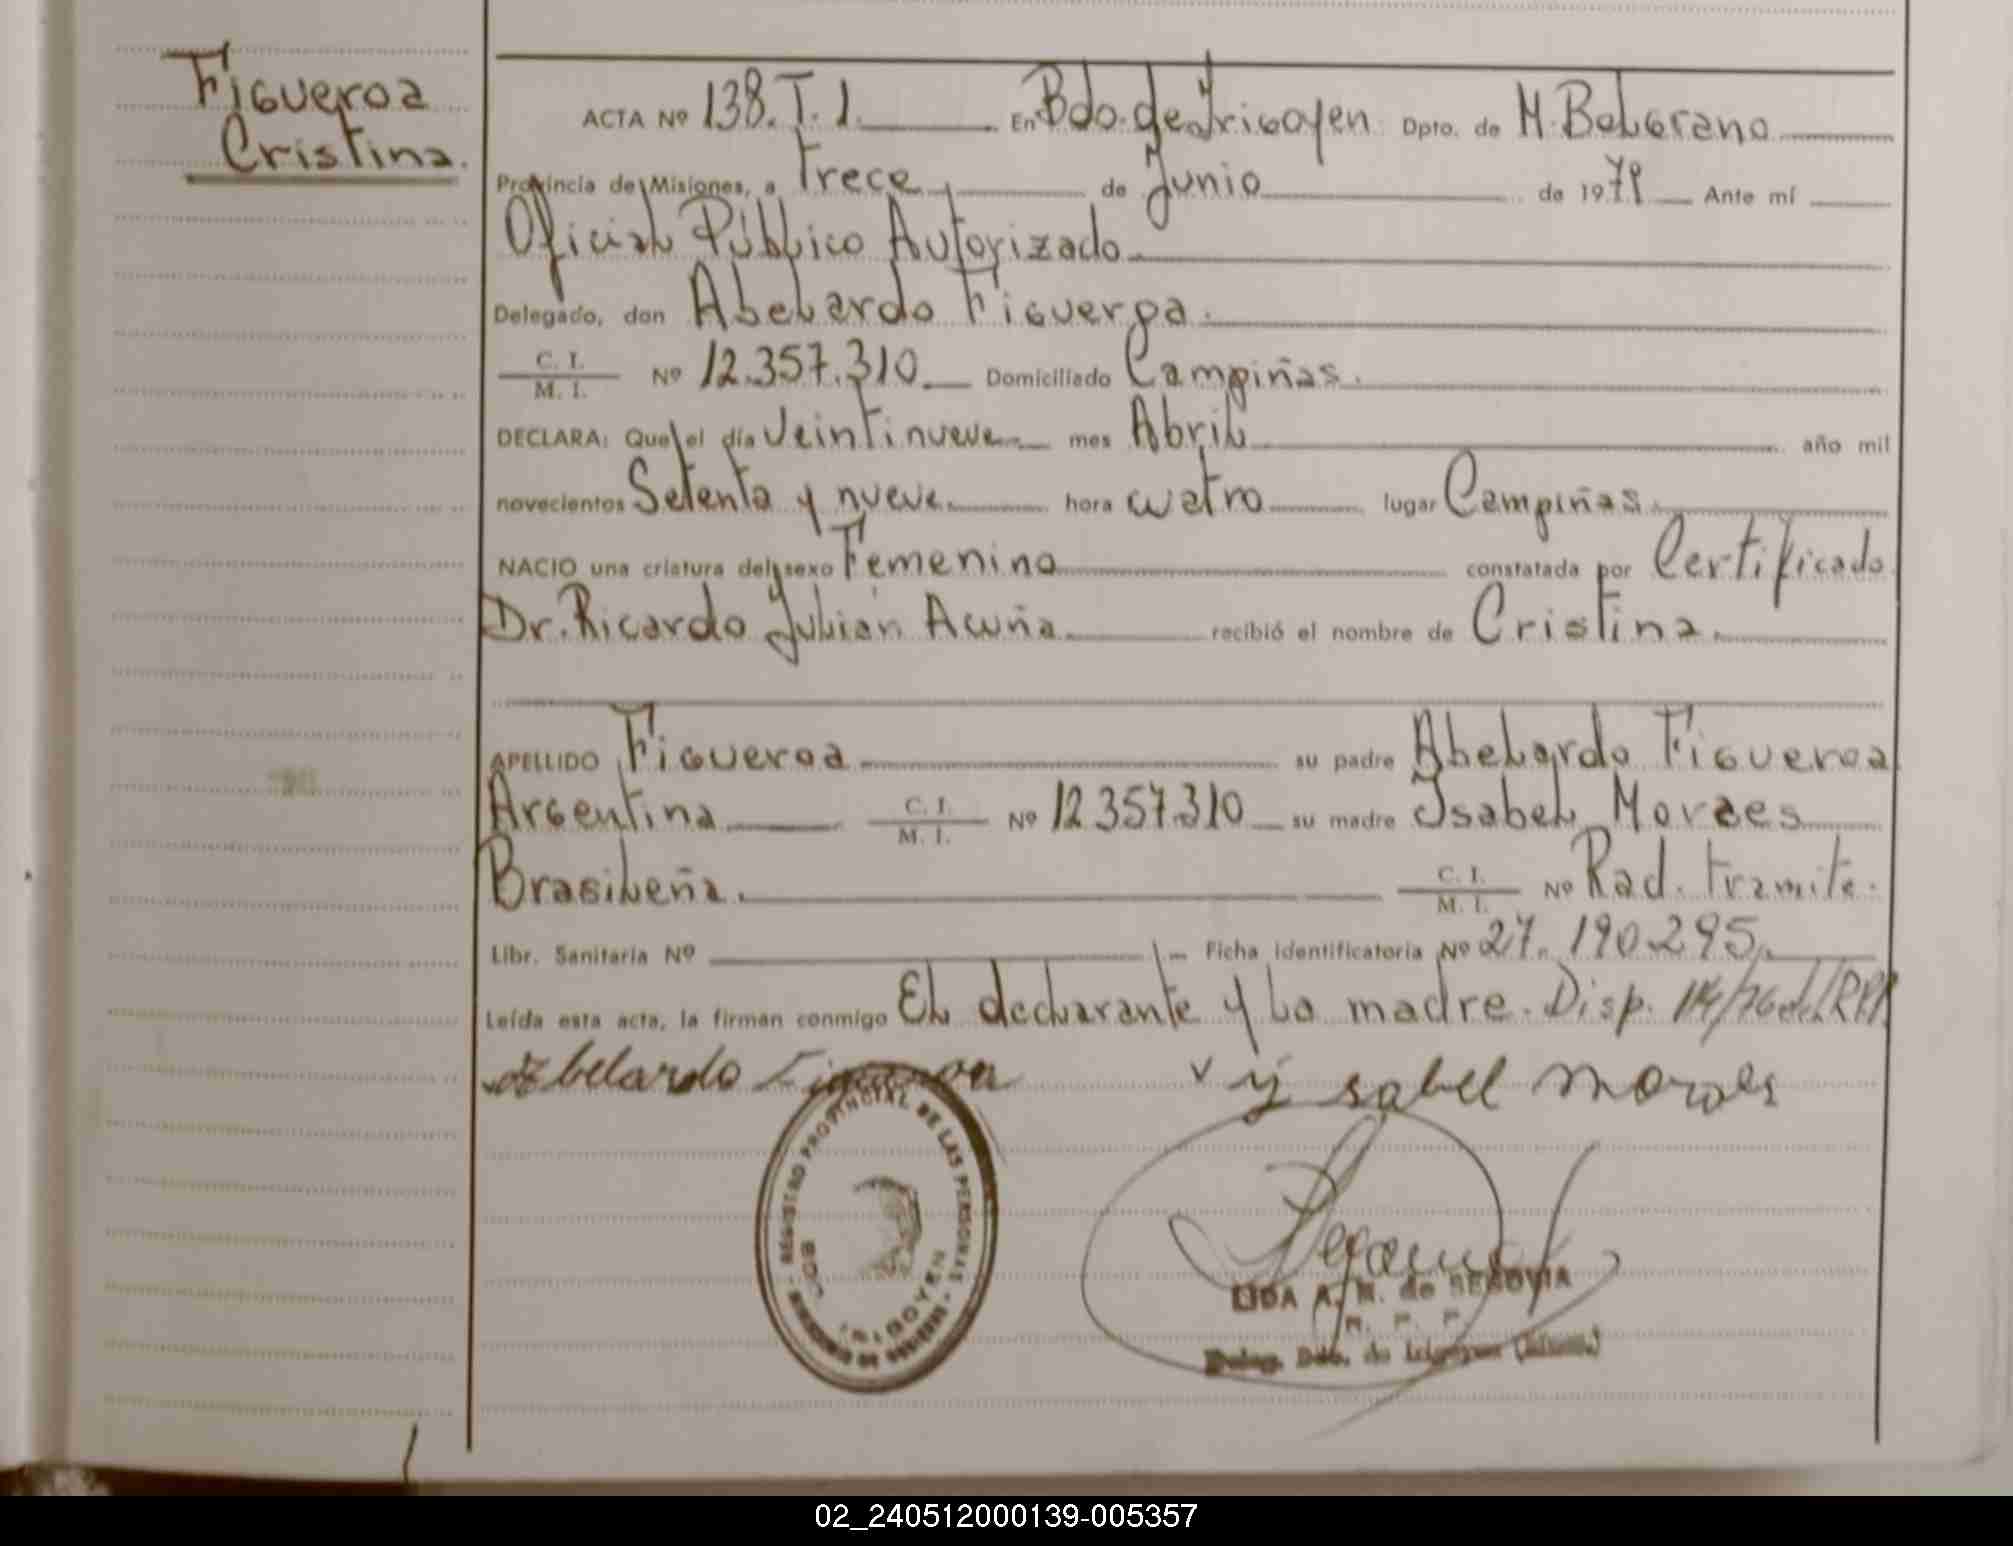 Figueroa
Cristina.
ACTA Nº 138. T. 1. En Bdo. de Irigoyen Dpto. de M. Belgrano
Provincia de Misiones, a trece de Junio de 1979 Ante mí
Oficial Público Autorizado
Delegado, don Abelardo Figueroa.
C. I.
M. I. Nº 12.357.310 Domiciliado Campiñas.
DECLARA: Que el día veintinueve mes Abril año mil
novecientos Setenta y nueve hora cuatro lugar Campiñas.
NACIO una criatura del sexo Femenino constatada por Certificado
Dr. Ricardo Julián Acuña recibió el nombre de Cristina.
APELLIDO Figueroa su padre Abelardo Figueroa
Argentina C. I. M. I. Nº 12.357.310 su madre Isabel Moraes
Brasileña. C. I. M. I. Nº Rad. tramite.
Libr. Sanitaria Nº Ficha identificatoria Nº 27.190.295
Leída esta acta, la firman conmigo El declarante y la madre. Disp. 114/76 del RPP.
Abelardo Figueroa v ysabel moraes
REGISTRO PROVINCIAL DE LAS PERSONAS
BDO. IRIGOYEN
LIDA A. M. de SEGOVIA
Deleg. Bdo. de Irigoyen (Misiones)
02_240512000139-005357